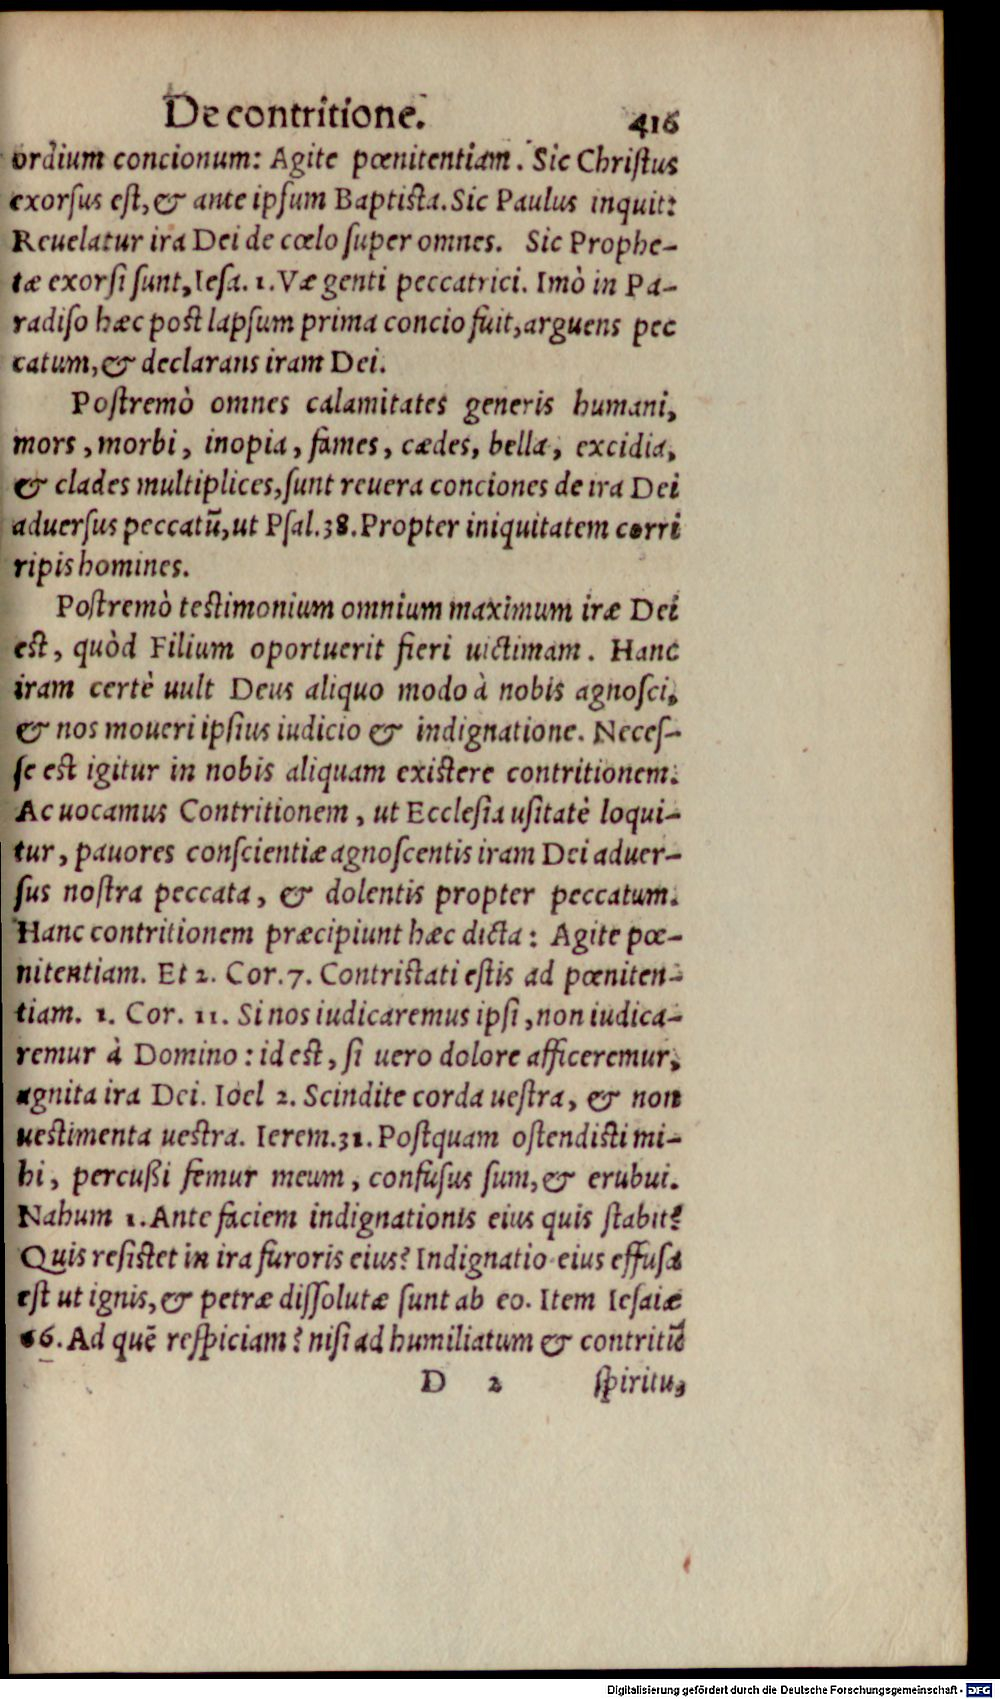 De contritione. 416
ordium concionum: Agite pœnitentiam. Sic Chriſtus
exorſus eſt, & ante ipſum Baptiſta. Sic Paulus inquit:
Reuelatur ira Dei de cœlo ſuper omnes. Sic Prophe-
tæ exorſi ſunt, Ieſa. 1. Væ genti peccatrici. Imò in Pa-
radiſo hæc poſt lapſum prima concio fuit, arguens pec
catum, & declarans iram Dei.
Poſtremò omnes calamitates generis humani,
mors, morbi, inopia, fames, cædes, bella, excidia,
& clades multiplices, ſunt reuera conciones de ira Dei
aduerſus peccatū, ut Pſal. 38. Propter iniquitatem corri
ripis homines.
Poſtremò teſtimonium omnium maximum iræ Dei
eſt, quòd Filium oportuerit fieri uictimam. Hanc
iram certè uult Deus aliquo modo à nobis agnoſci,
& nos moueri ipſius iudicio & indignatione. Neceſ-
ſe eſt igitur in nobis aliquam exiſtere contritionem.
Ac uocamus Contritionem, ut Eccleſia uſitatè loqui-
tur, pauores conſcientiæ agnoſcentis iram Dei aduer-
ſus noſtra peccata, & dolentis propter peccatum.
Hanc contritionem præcipiunt hæc dicta: Agite pœ-
nitentiam. Et 2. Cor. 7. Contriſtati eſtis ad pœniten-
tiam. 1. Cor. 11. Si nos iudicaremus ipſi, non iudica-
remur à Domino: id eſt, ſi uero dolore afficeremur,
agnita ira Dei. Ioel 2. Scindite corda ueſtra, & non
ueſtimenta ueſtra. Ierem. 31. Poſtquam oſtendiſti mi-
hi, percußi femur meum, confuſus ſum, & erubui.
Nahum 1. Ante faciem indignationis eius quis ſtabit?
Quis reſiſtet in ira furoris eius? Indignatio eius effuſa
eſt ut ignis, & petræ diſſolutæ ſunt ab eo. Item Ieſaiæ
66. Ad quē reſpiciam? niſi ad humiliatum & contritū
D 2 ſpiritu,
Digitalisierung gefördert durch die Deutsche Forschungsgemeinschaft - DFG